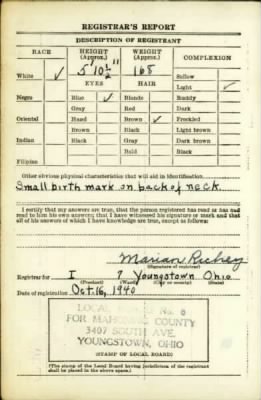 REGISTRAR'S REPORT
DESCRIPTION OF REGISTRANT
RACE HEIGHT (Approx.) WEIGHT (Approx.) COMPLEXION
5' 10 1/2" 168 Sallow
White ✓ EYES HAIR Light ✓
Negro Blue ✓ Blonde Ruddy
Gray Red Dark
Oriental Hazel Brown ✓ Freckled
Brown Black Light brown
Indian Black Gray Dark brown
Bald Black
Filipino
Other obvious physical characteristic that will aid in identification
Small birth mark on back of neck
I certify that my answers are true; that the person registered has read or has had
read to him his own answers; that I have witnessed his signature or mark and that
all of his answers of which I have knowledge are true, except as follows:
Marian Richey
(Signature of registrar)
Registrar for I 7 Youngstown Ohio
(Precinct) (Ward) (City or county) (State)
Date of registration Oct. 16, 1940
LOCAL No. 6
FOR MAHONING COUNTY
3407 SOUTH AVE.
YOUNGSTOWN, OHIO
(STAMP OF LOCAL BOARD)
(The stamp of the Local Board having jurisdiction of the registrant
shall be placed in the above space.)